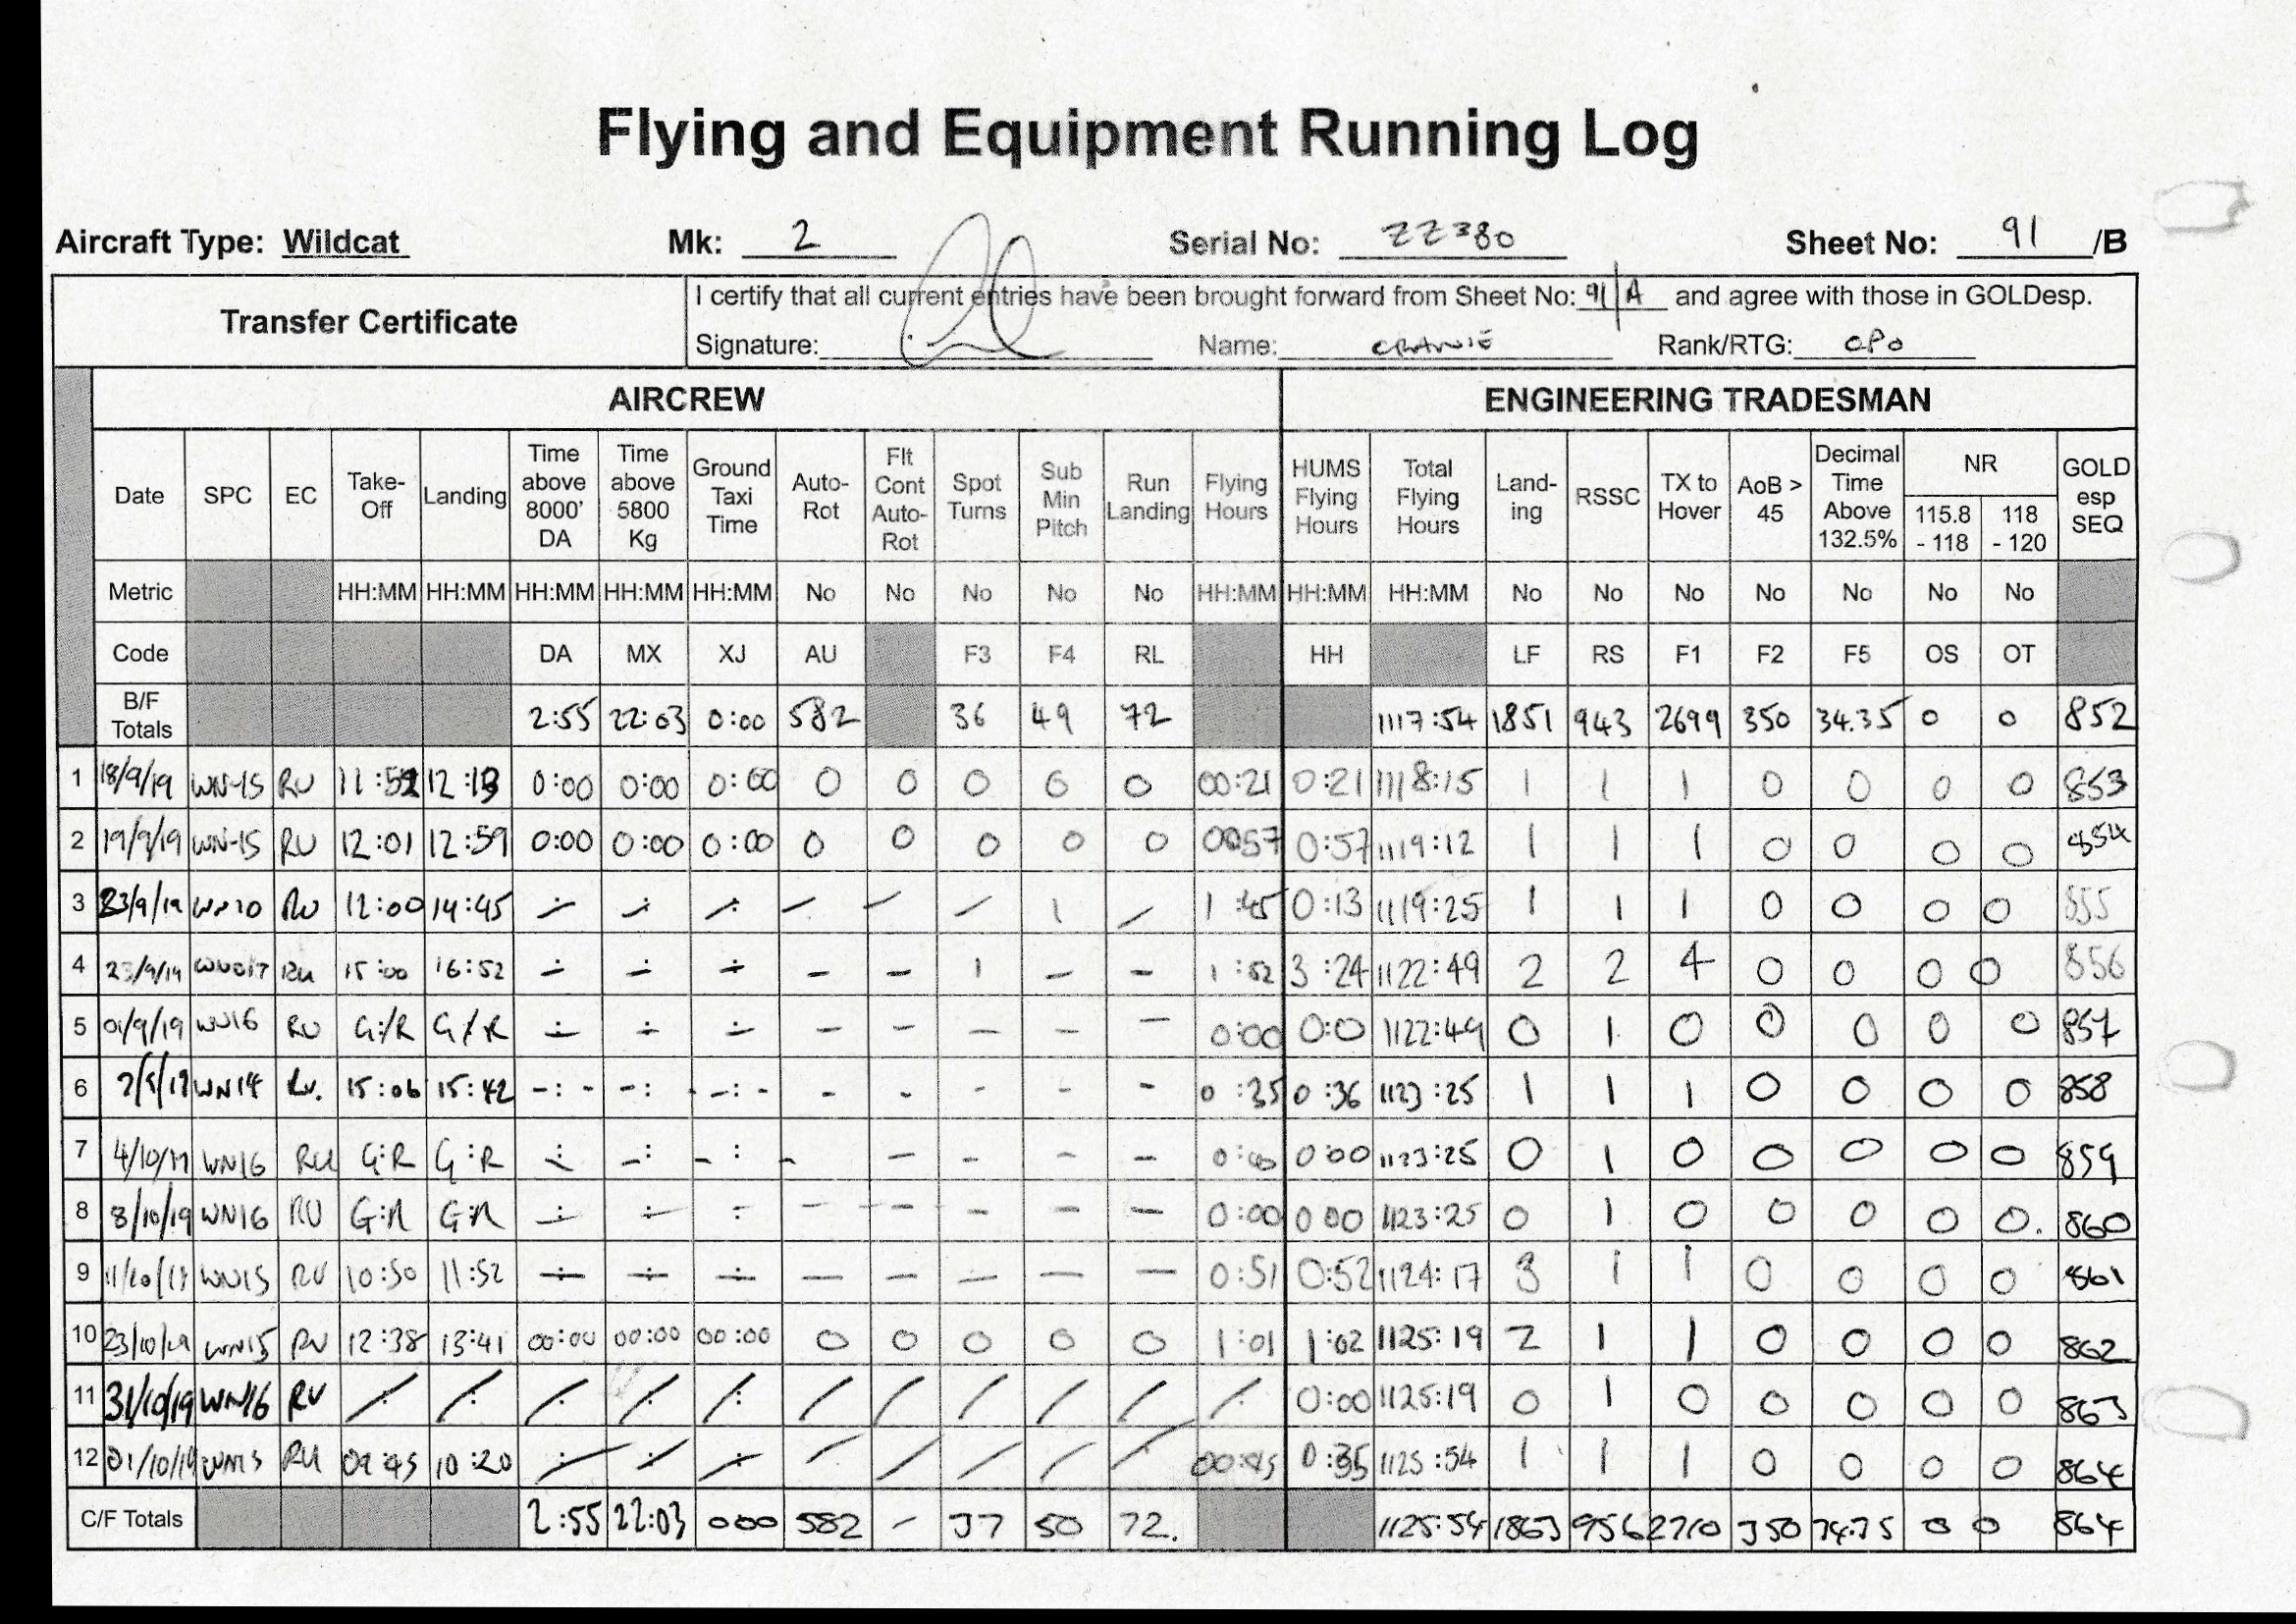 Flying and Equipment Running Log
Aircraft Type: Wildcat Mk: 2 Serial No: ZZ380 Sheet No: 91 /B
Transfer Certificate
I certify that all current entries have been brought forward from Sheet No: 91/A and agree with those in GOLDesp.
Signature: Name: Rank/RTG: CPO
AIRCREW ENGINEERING TRADESMAN
Date SPC EC Take-Off Landing Time above 8000' DA Time above 5800 Kg Ground Taxi Time Auto-Rot Flt Cont Auto-Rot Spot Turns Sub Min Pitch Run Landing Flying Hours HUMS Flying Hours Total Flying Hours Land-ing RSSC TX to Hover AoB > 45 Decimal Time Above 132.5% NR 115.8 - 118 118 - 120 GOLD esp SEQ
Metric HH:MM HH:MM HH:MM HH:MM HH:MM No No No No No HH:MM HH:MM HH:MM No No No No No No No
Code DA MX XJ AU F3 F4 RL HH LF RS F1 F2 F5 OS OT
B/F Totals 2:55 22:03 0:00 582 36 49 72 1117:54 1851 943 2699 350 34.35 0 0 852
1 18/9/19 WN-15 RU 12:13 0:00 0:00 0:00 0 0 0 0 0 00:21 0:21 1118:15 1 1 1 0 0 0 0 853
2 19/9/19 WN-15 RU 12:01 12:59 0:00 0:00 0:00 0 0 0 0 0 0057 0:57 1119:12 1 1 1 0 0 0 0 854
3 23/9/19 RU 12:00 14:45 -:- -:- -:- - - - 1 - 1:45 0:13 1119:25 1 1 1 0 0 0 0 855
4 23/9/19 RU 15:00 16:52 -:- -:- -:- - - 1 - - 1:52 3:24 1122:49 2 2 4 0 0 0 0 856
5 01/9/19 WN16 RU G:/R G:/R -:- -:- -:- - - - - - 0:00 0:0 1122:49 0 1 0 0 0 0 0 857
6 WN14 RU. 15:06 15:42 -:- -:- -:- - - - - - 0:35 0:36 1123:25 1 1 1 0 0 0 0 858
7 4/10/19 WN16 RU G:R G:R -:- -:- -:- - - - - - 0:00 0:00 1123:25 0 1 0 0 0 0 0 859
8 8/10/19 WN16 RU G:R G:R -:- -:- : - - - - - 0:00 0 00 1123:25 0 1 0 0 0 0 0. 860
9 11/10/19 WN15 RU 10:50 11:52 -:- -:- -:- - - - - - 0:51 0:52 1124:17 3 1 1 0 0 0 0 861
10 23/10/19 WN15 RU 12:38 13:41 00:00 00:00 00:00 0 0 0 0 0 1:01 1:02 1125:19 2 1 1 0 0 0 0 862
11 31/10/19 WN16 RU / / / / / / / / / / / 0:00 1125:19 0 1 0 0 0 0 0 863
12 01/10/19 RU 09:45 10:20 / / / / / / / / 0:35 1125:54 1 1 1 0 0 0 0 864
C/F Totals 2:55 22:03 000 582 - 37 50 72. 1125:54 1863 956 2710 350 0 0 864